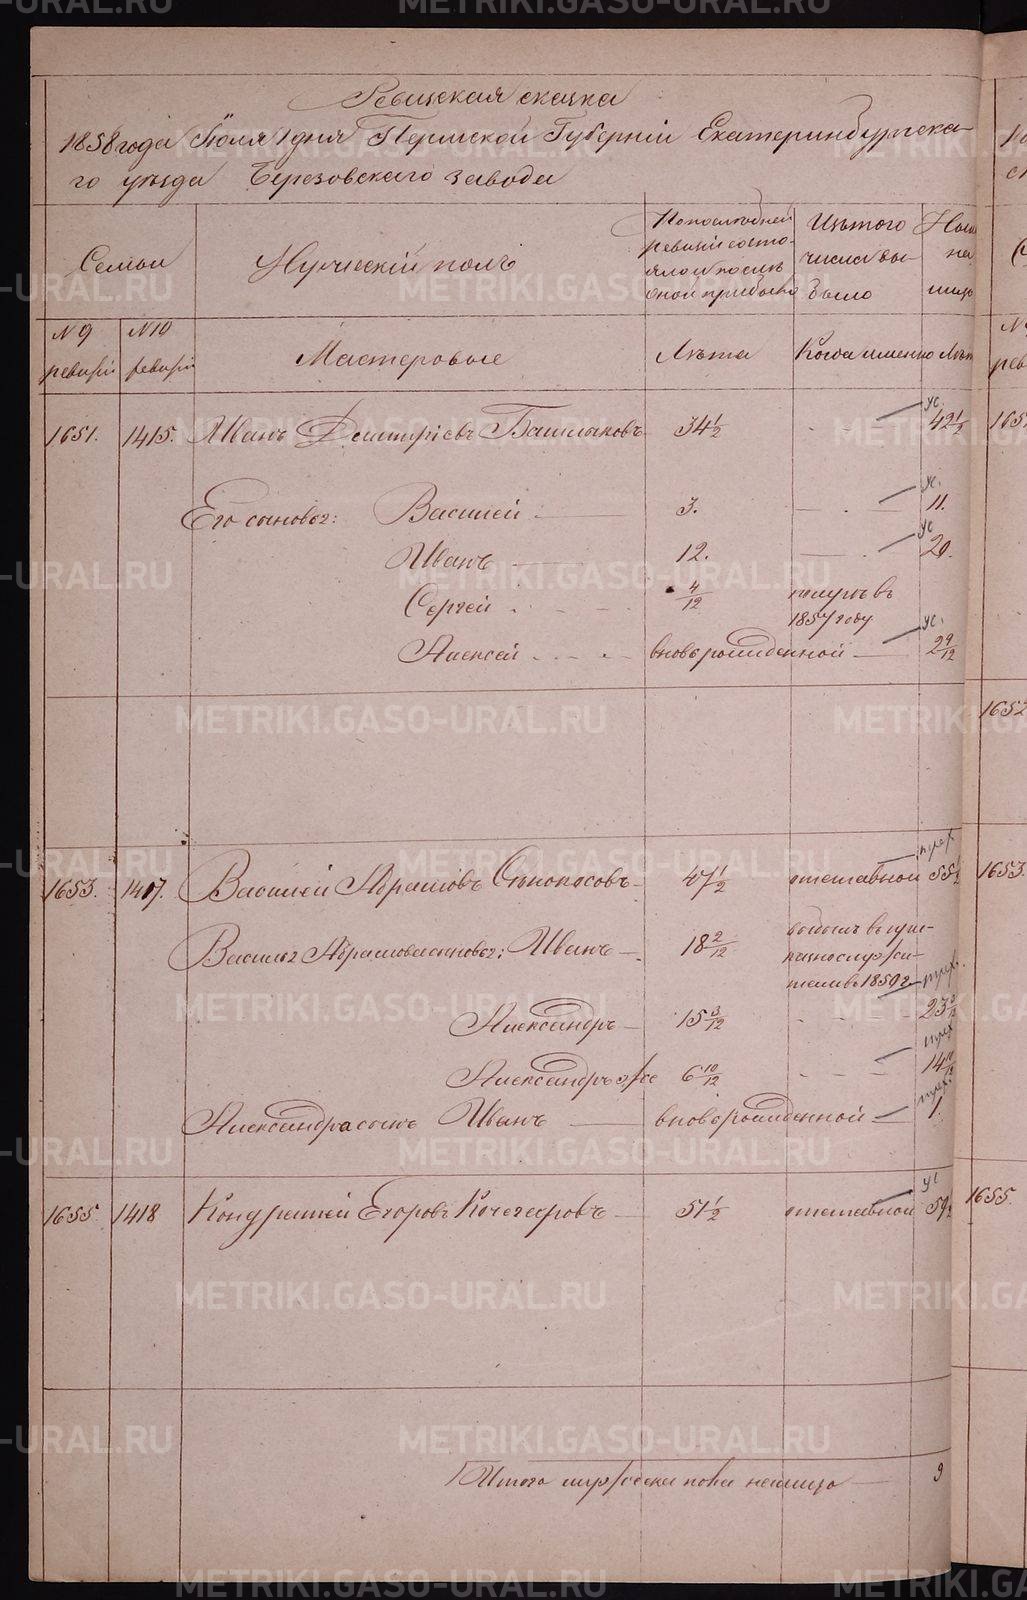 METRIKI.GASO-URAL.RU
Ревизская сказка
1858 года Июля 1 дня Пермской Губерніи Екатеринбургска-
го уезда Березовскаго завода
Семьи
Мужескій полъ
По последней ревизіи состояло и после оной прибыло
Изъ того числа выбыло
Ныне на лицо
N 9 ревизіи
N 10 ревизіи
Мастеровые
Лета
Когда именно
Лета
1651. 1415. Иванъ Дмитріевъ Башлыковъ 34 1/2 ус. 42 1/2
Его сыновья: Василей 3. ус. 11.
Иванъ 12. ус 20.
Сергей 4/12 померъ въ 1857 году
Алексей вновь рожденной ус. 2 9/12
1653. 1407. Василей Абрамовъ Сенокосовъ 47 1/2 отставной 55 1/2
Василья Абрамова сыновья: Иванъ 18 2/12 1850 г
Александръ 15 3/12 23 3/12
Александръ же 6 10/12 14 10/12
Александра сынъ Иванъ вновь рожденной 1.
1655 1418 Кондратей Егоровъ Кочегаровъ 51 1/2 отставной ус 59 1/2
Итого мужеска пола налицо 9
1652
1653.
1655.